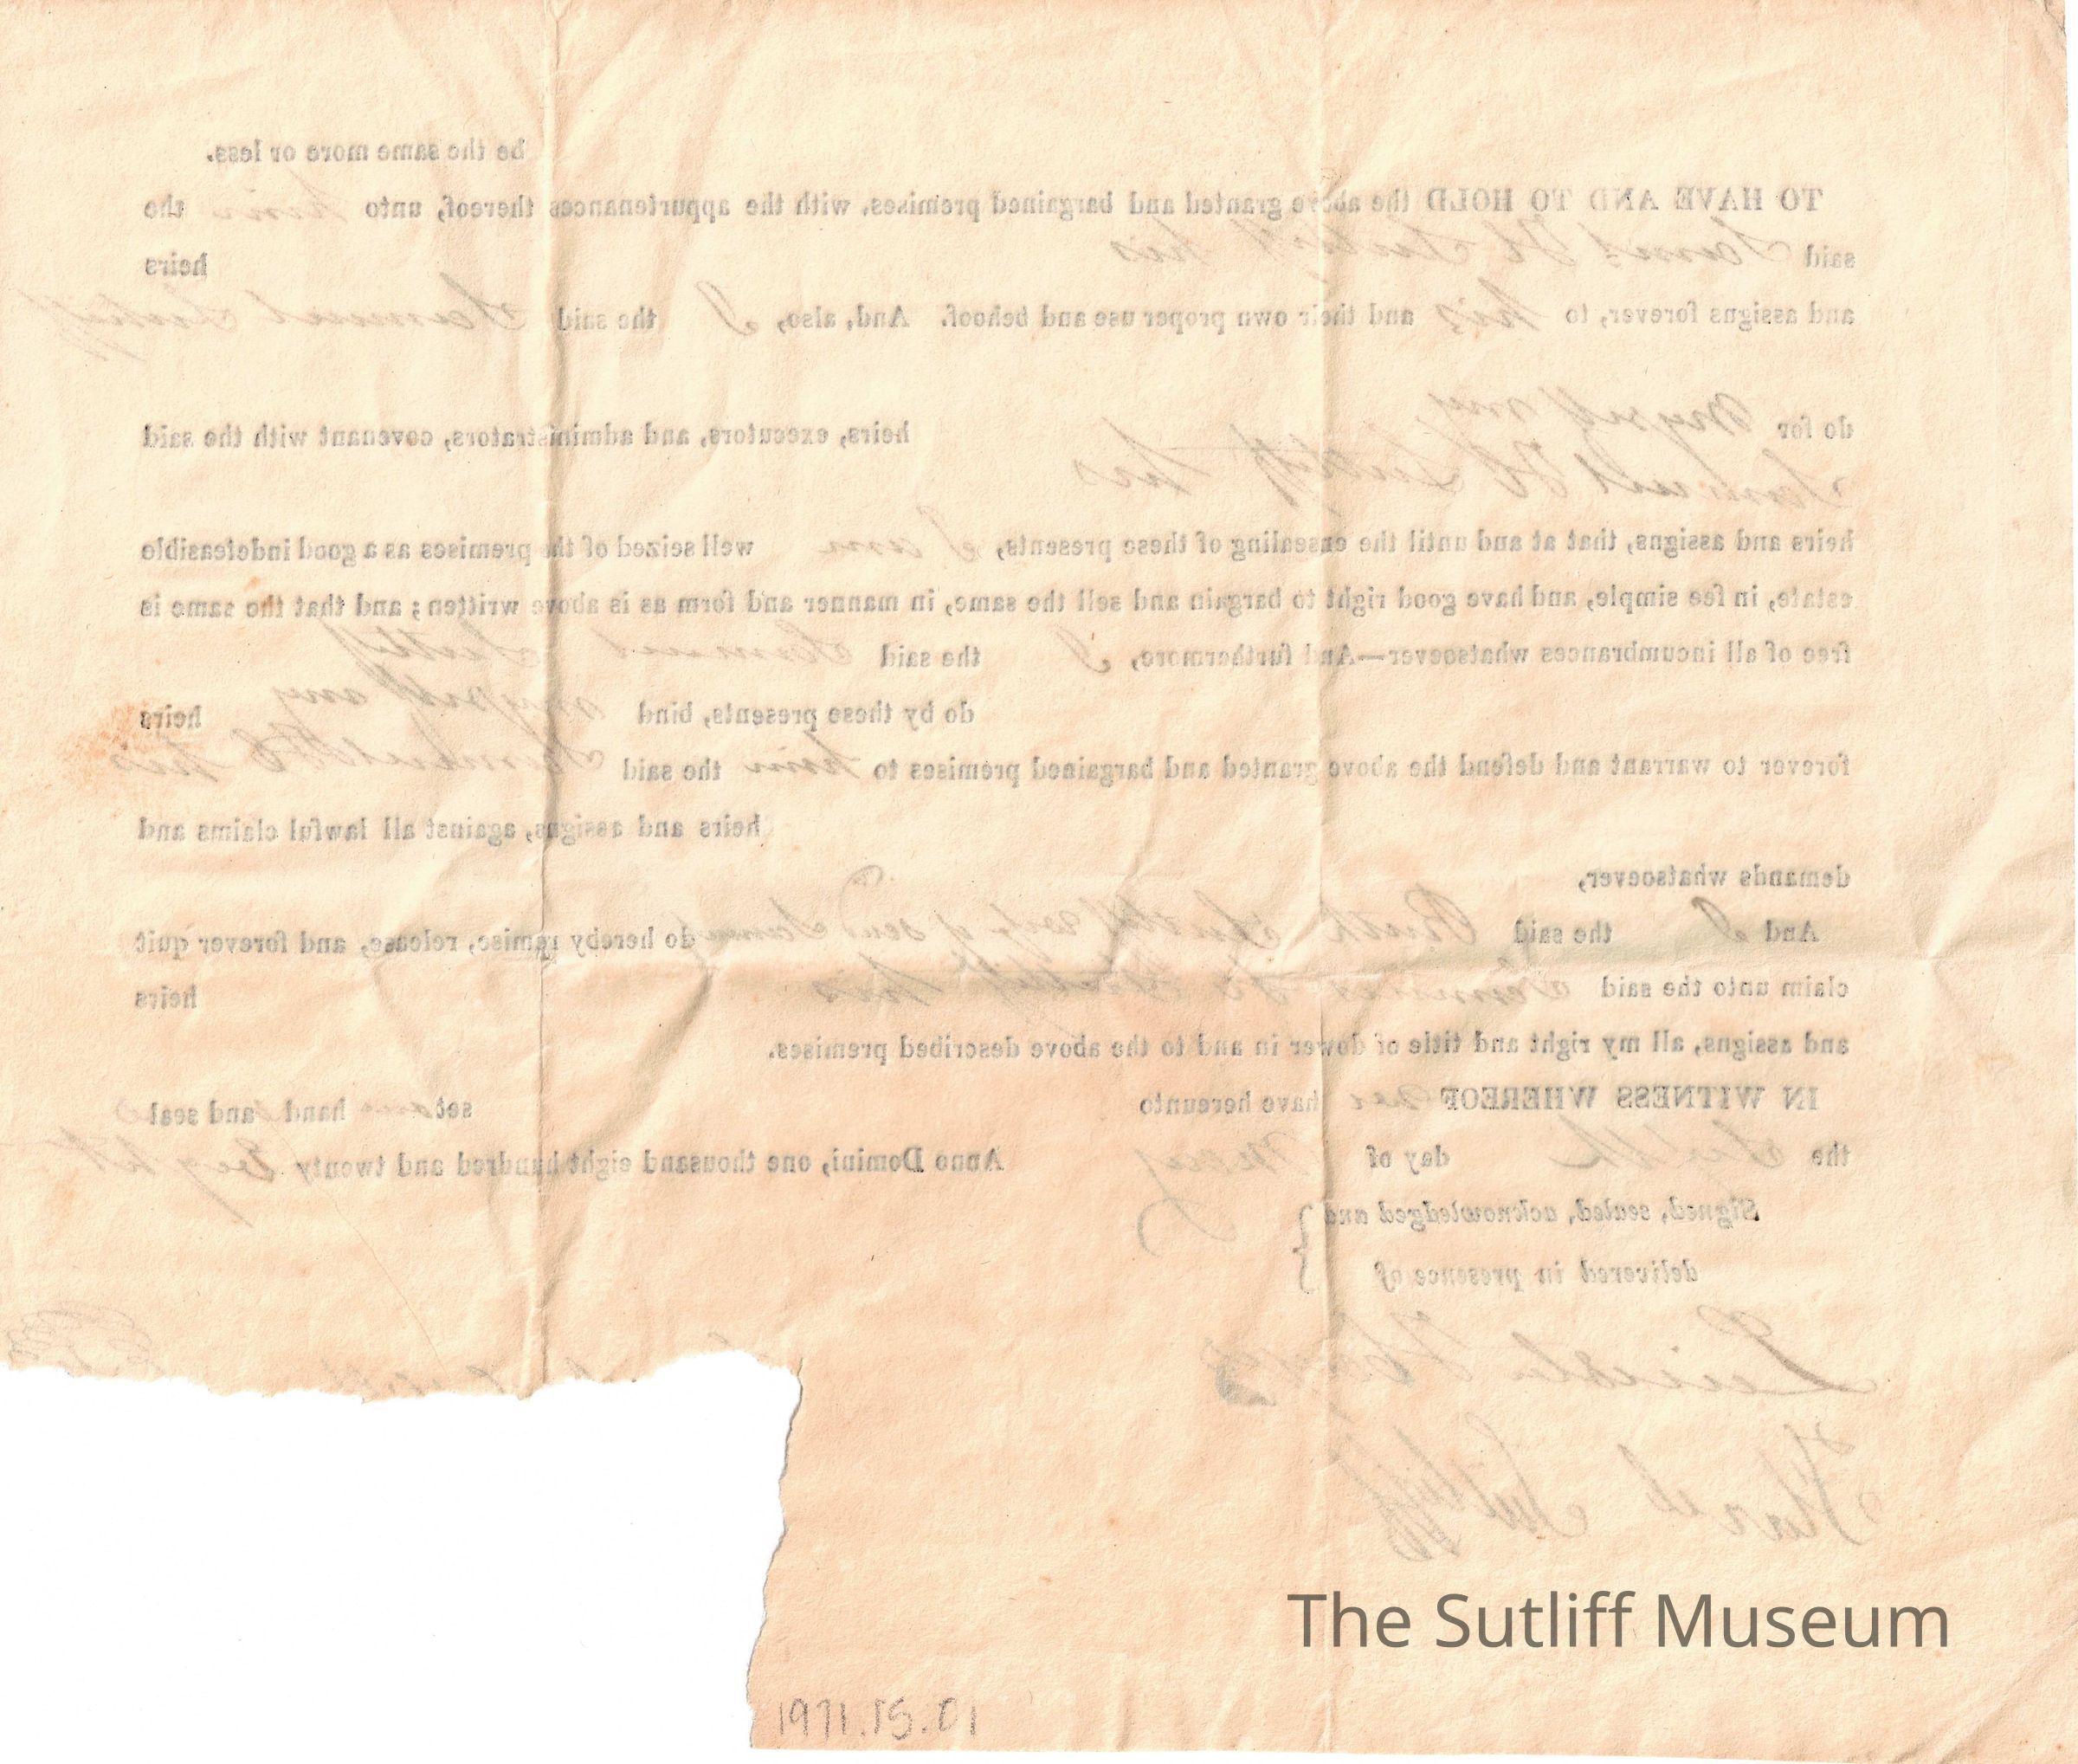 be the same more or less.
TO HAVE AND TO HOLD the above granted and bargained premises, with the appurtenances thereof, unto him the
said Saml H Sutliff his heirs
and assigns forever, to his and their own proper use and behoof. And, also, I the said Samuel Sutliff
do for myself my heirs, executors, and administrators, covenant with the said
H Sutliff his
heirs and assigns, that at and until the ensealing of these presents, I am well seized of the premises as a good indefeasible
estate, in fee simple, and have good right to bargain and sell the same, in manner and form as is above written; and that the same is
free of all incumbrances whatsoever—And furthermore, I the said Samuel Sutliff
do by these presents, bind myself my heirs
forever to warrant and defend the above granted and bargained premises to him the said H his
heirs and assigns, against all lawful claims and
demands whatsoever,
And I the said Ruth Sutliff wife of said Samuel do hereby remise, release, and forever quit
claim unto the said Samuel H Sutliff his heirs
and assigns, all my right and title of dower in and to the above described premises.
IN WITNESS WHEREOF we have hereunto set our hand and seal
the day of May Anno Domini, one thousand eight hundred and twenty Eight
Signed, sealed, acknowledged and
delivered in presence of
Sutliff
The Sutliff Museum
1971.15.01